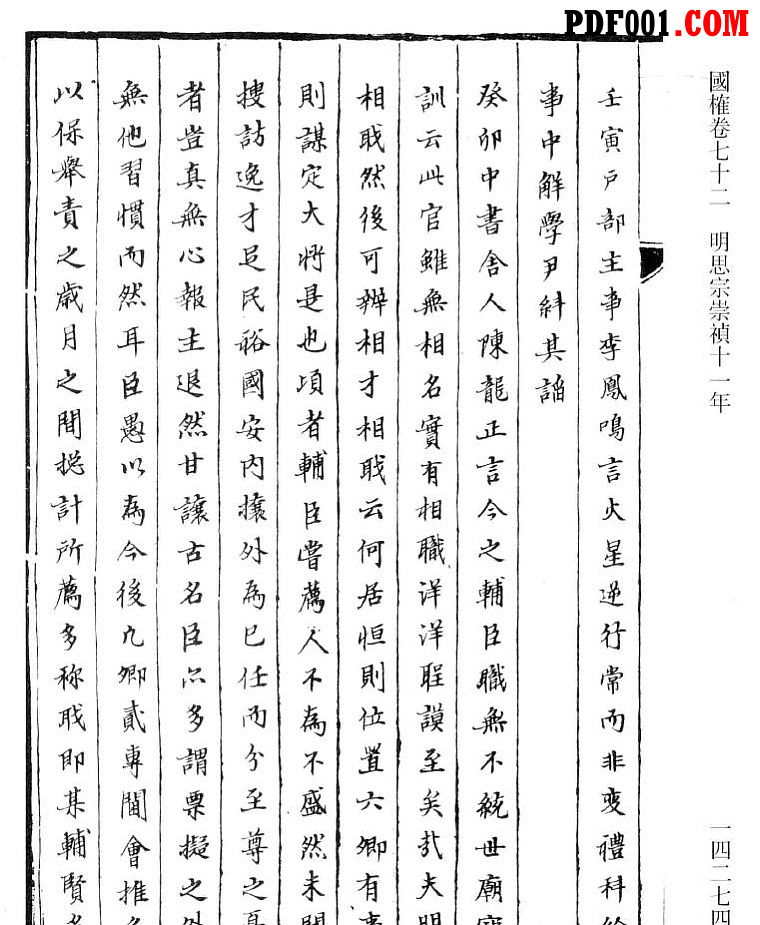 PDF001.COM
國榷卷七十二 明思宗崇禎十一年
一四二七四
壬寅戶部主事李鳳鳴言火星逆行常而非變禮科給
事中解學尹糾其謟
癸卯中書舍人陳龍正言今之輔臣職無不統世廟
訓云此官雖無相名實有相職洋洋聖謨至矣哉夫明
相職然後可辦相才相職云何居恒則位置六卿有事
則謀定大將是也頃者輔臣嘗薦人不為不盛然未聞
搜訪逸才足民裕國安內攘外為己任而分至尊之憂
者豈真無心報主退然甘讓古名臣哉多謂票擬之外
無他習慣而然耳臣愚以為今後凡卿貳專閫會推
以保舉責之歲月之間揔計所薦多称職即某輔賢